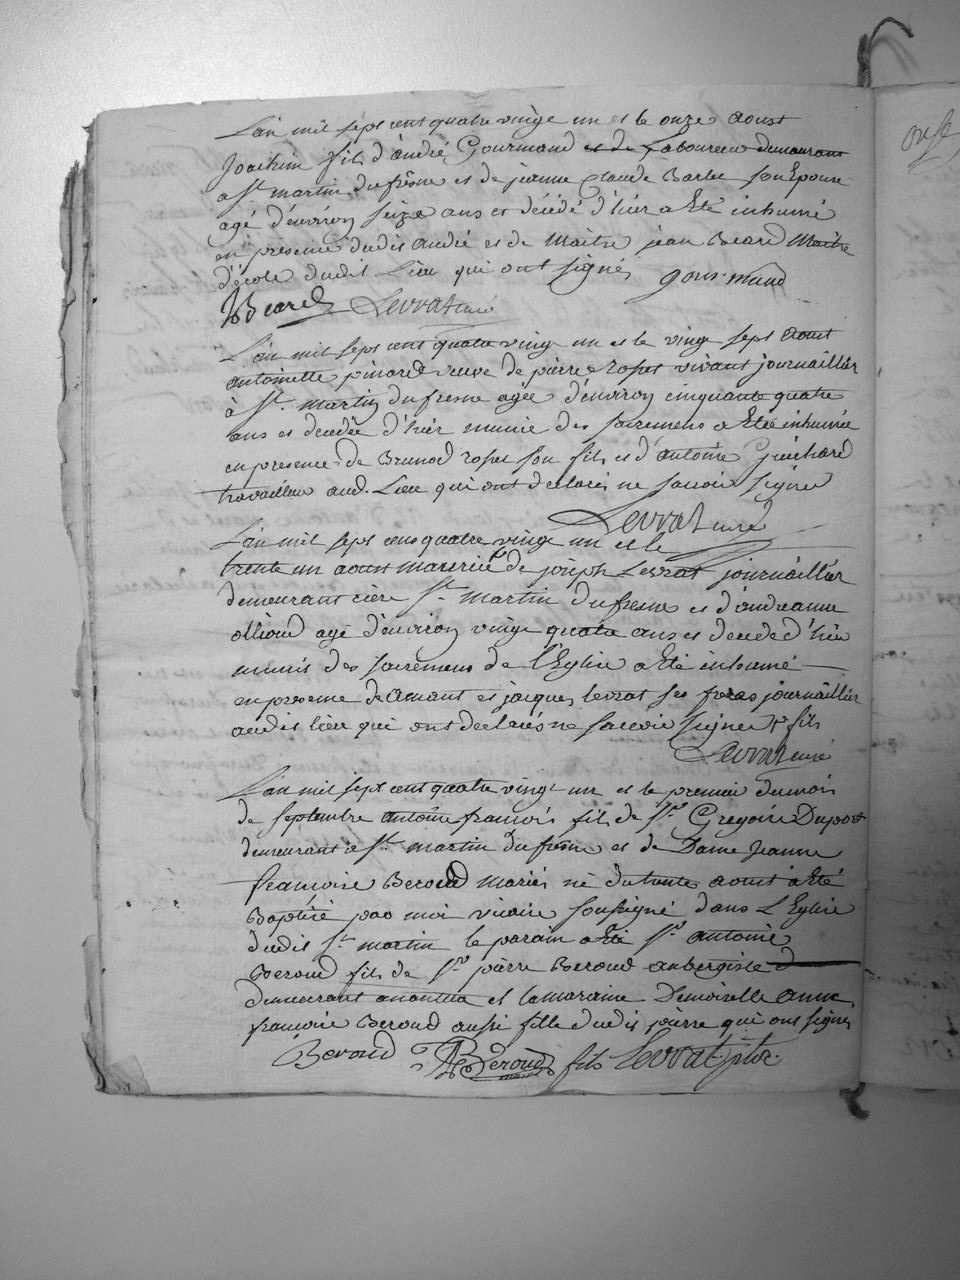 L'an mil sept cent quatre vingt un et le onze aoust
Joachim fils d'andré Gourmand et de Laboureur demeurant
a St martin du fresne et de jeanne Claude Barbe son Epouse
agé d'environ seize ans et décédé d'hier a Eté inhumé
en presence dudit andré et de Maitre jean Beard Maitre
d'école dudit Lieu qui ont signés gourmand
JBeard Levrat curé
L'an mil sept cent quatre vingt un et le vingt sept aout
antoinette pinard veuve de pierre roset vivant journaillier
à St. martin du fresne agée d'environ cinquante quatre
ans et decedée d'hier munie des sacremens a Eté inhumée
en presence de Brunod roset son fils et d'antoine Guichard
travailleur aud. Lieu qui ont declarés ne savoir signer
Levrat curé
L'an mil sept cent quatre vingt un et le
trente un aoust de joseph Levrat journaillier
demeurant St martin du fresne et d'andreanne
agé d'environ vingt quatre ans et decedé d'hier
munis des sacremens de l'Eglise a Eté inhumé
en presence de amant et jacques levrat ses freres journaillier
audit lieu qui ont declarés ne savoir signer fils
Levrat curé
L'an mil sept cent quatre vingt un et le premier du mois
de septembre antoine francois fils de Sr. Gregoire Duport
demeurant a St martin du fresne et de Dame Jeanne
francoise Beroud mariés né du trente aout a Eté
Baptisé par moi vicaire soussigné dans L'Eglise
dudit St martin le parain a Eté Sr antoine
Beroud fils de Sr pierre Beroud aubergiste
demeurant a nantua et la maraine Demoiselle anne
francoise Beroud aussi fille dudit pierre qui ont signes
Beroud Beroud fils Levrat